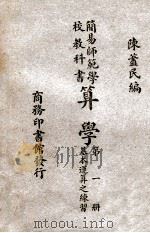 陳藎民編
簡易師範學
校教科書
算學
第一冊
基本運算之練習
商務印書館發行